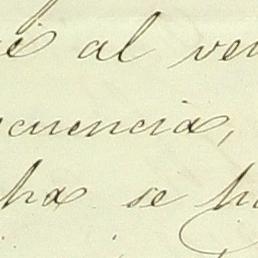 al ven
cuencia,
ha se h